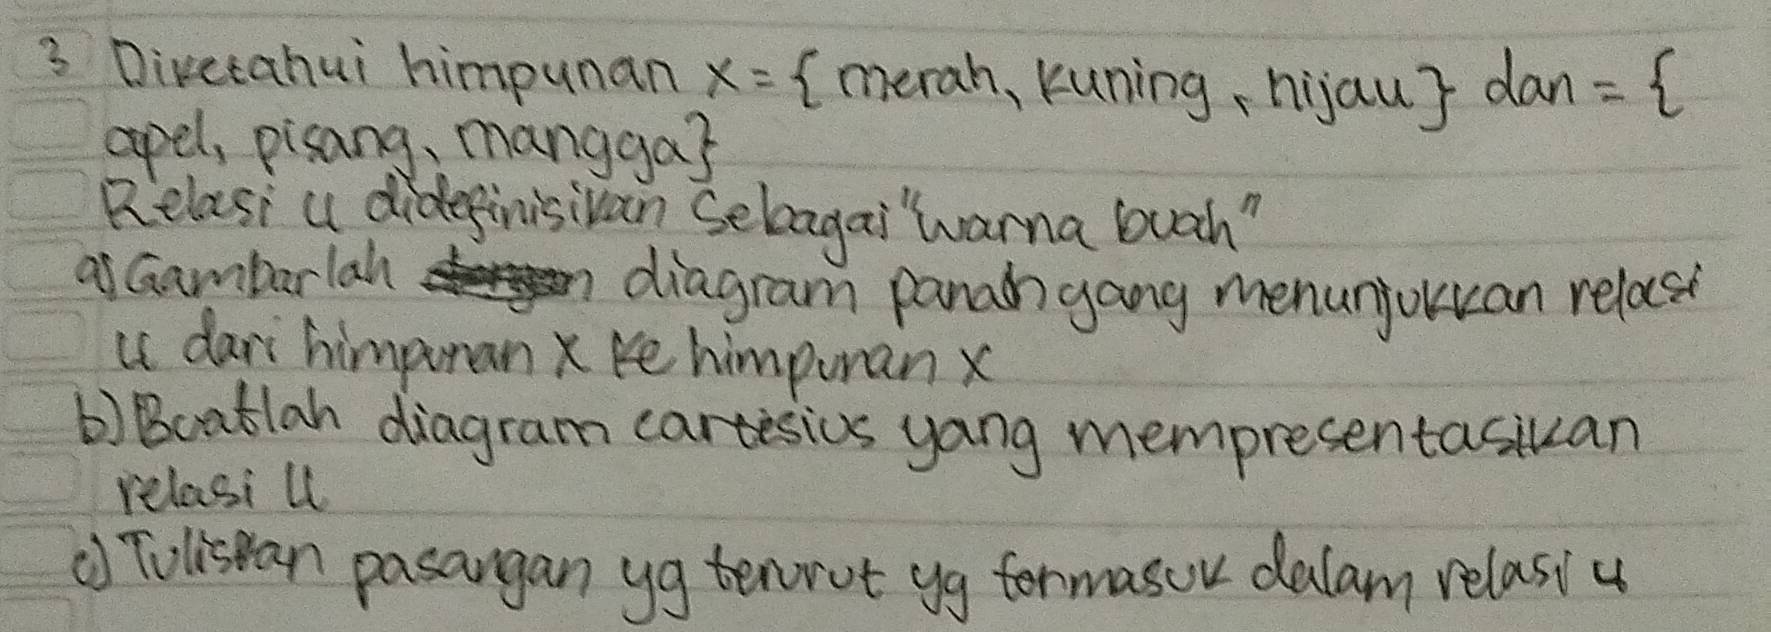 3 Diketahui himpunan x = { merah, kuning, hijau } dan = {
apel, pisang, mangga}
Relasi u didefinisikan sebagai "warna buah"
a) Gambarlah diagram panah yang menunjukkan relasi
u dari himpunan x ke himpunan x
b) Buatlah diagram cartesius yang mempresentasikan
relasi u
c) Tuliskan pasangan yg terurut yg termasuk dalam relasi u